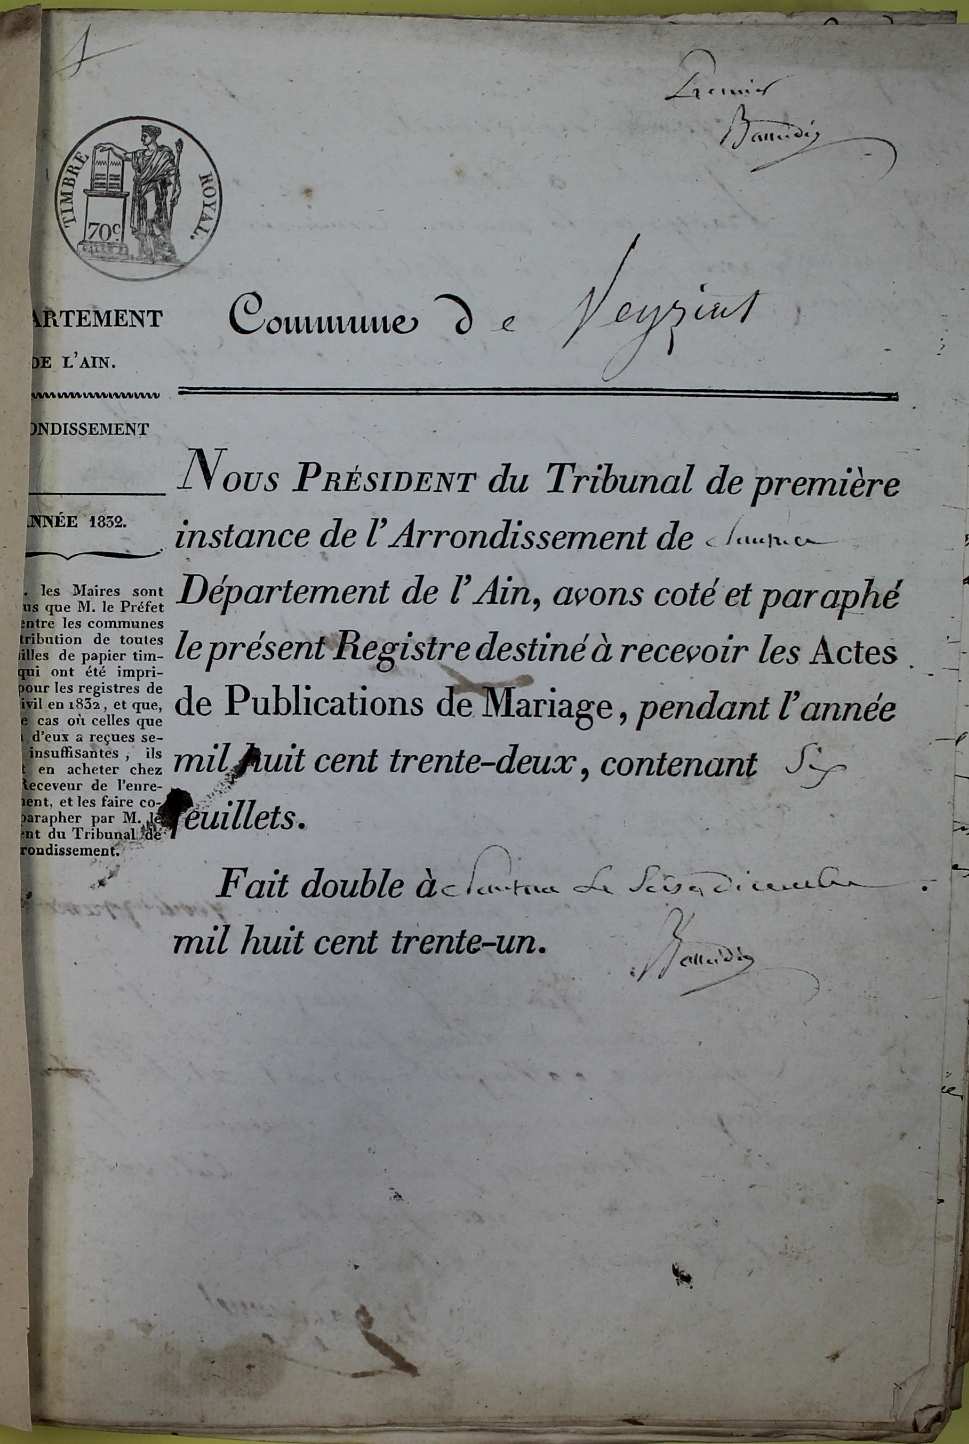 1
Premier
TIMBRE ROYAL.
70c
ARTEMENT
DE L'AIN.
ONDISSEMENT
ANNÉE 1832.
. les Maires sont
us que M. le Préfet
entre les communes
tribution de toutes
illes de papier tim-
qui ont été impri-
pour les registres de
ivil en 1832, et que,
e cas où celles que
d'eux a reçues se-
insuffisantes, ils
t en acheter chez
Receveur de l'enre-
ent, et les faire co-
parapher par M. le
nt du Tribunal de
rondissement.
Commune de Veyziat
NOUS PRÉSIDENT du Tribunal de première
instance de l'Arrondissement de Nantua
Département de l'Ain, avons coté et paraphé
le présent Registre destiné à recevoir les Actes
de Publications de Mariage, pendant l'année
mil huit cent trente-deux, contenant Six
feuillets.
Fait double à Nantua Le Seize Décembre
mil huit cent trente-un.